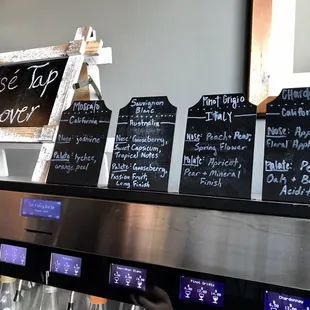 sé Tap
over
Moscato
California
Nose:
Jasmine
Palete:
lychee +
orange peel
Sauvignon
Blanc
Australia
Nose: Gooseberry,
Sweet Capsicum,
Tropical Notes
Palete: Gooseberry,
Passion Fruit,
Long Finish
Pinot Grigio
ITALY
Nose: Peach + Pear,
Spring Flower
Palete: Apricot,
Pear + Mineral
Finish
Chardo
Californ
Nose: App
Floral App
Palete:
Oak + B
Acidit
Pinot Grigio
Chardonnay